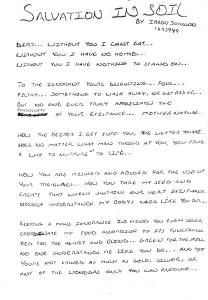 SALVATION IN SOIL
BY
DIRT... WITHOUT YOU I CAN'T EAT...
WITHOUT YOU I HAVE NO HOME...
WITHOUT YOU I HAVE NOTHING TO STAND ON...
TO THE IGNORANT YOU'RE DISGUSTING... FOUL...
FILTHY... SOMETHING TO WASH AWAY, OR GET RID OF...
BUT NO ONE EVER TRULY APPRECIATES THE
OF YOUR EXISTANCE... MOTHER NATURE...
HOW THE DEEPER I GET INTO YOU, THE WETTER YOU ARE...
HOW NO MATTER WHAT MAN THROWS AT YOU, YOU FIND
A WAY TO NURTURE IT TO LIFE...
HOW YOU ARE MINDED AND ADORED FOR THE USE OF
YOUR TREASURES... HOW YOU TAKE MY SEED AND
CREATE THAT WHICH SUSTAINS OUR VERY EXISTANCE.
NOBODY UNDERSTANDS MY BODY'S NEEDS LIKE YOU DO...
KEEPING A MANS IGNORANCE IN MIND YOU EVEN COLOR
COORDINATE MY FOOD ACCORDING TO ITS FUNCTION.
RED FOR THE HEART AND BLOOD... GREEN FOR THE
NO ONE UNDERSTANDS ME LIKE YOU DO... AND YET
YOU'RE NOT VALUED AS MUCH AS GOLD, SILVER, OR
ANY OF THE WONDERS ONLY YOU CAN PRODUCE...